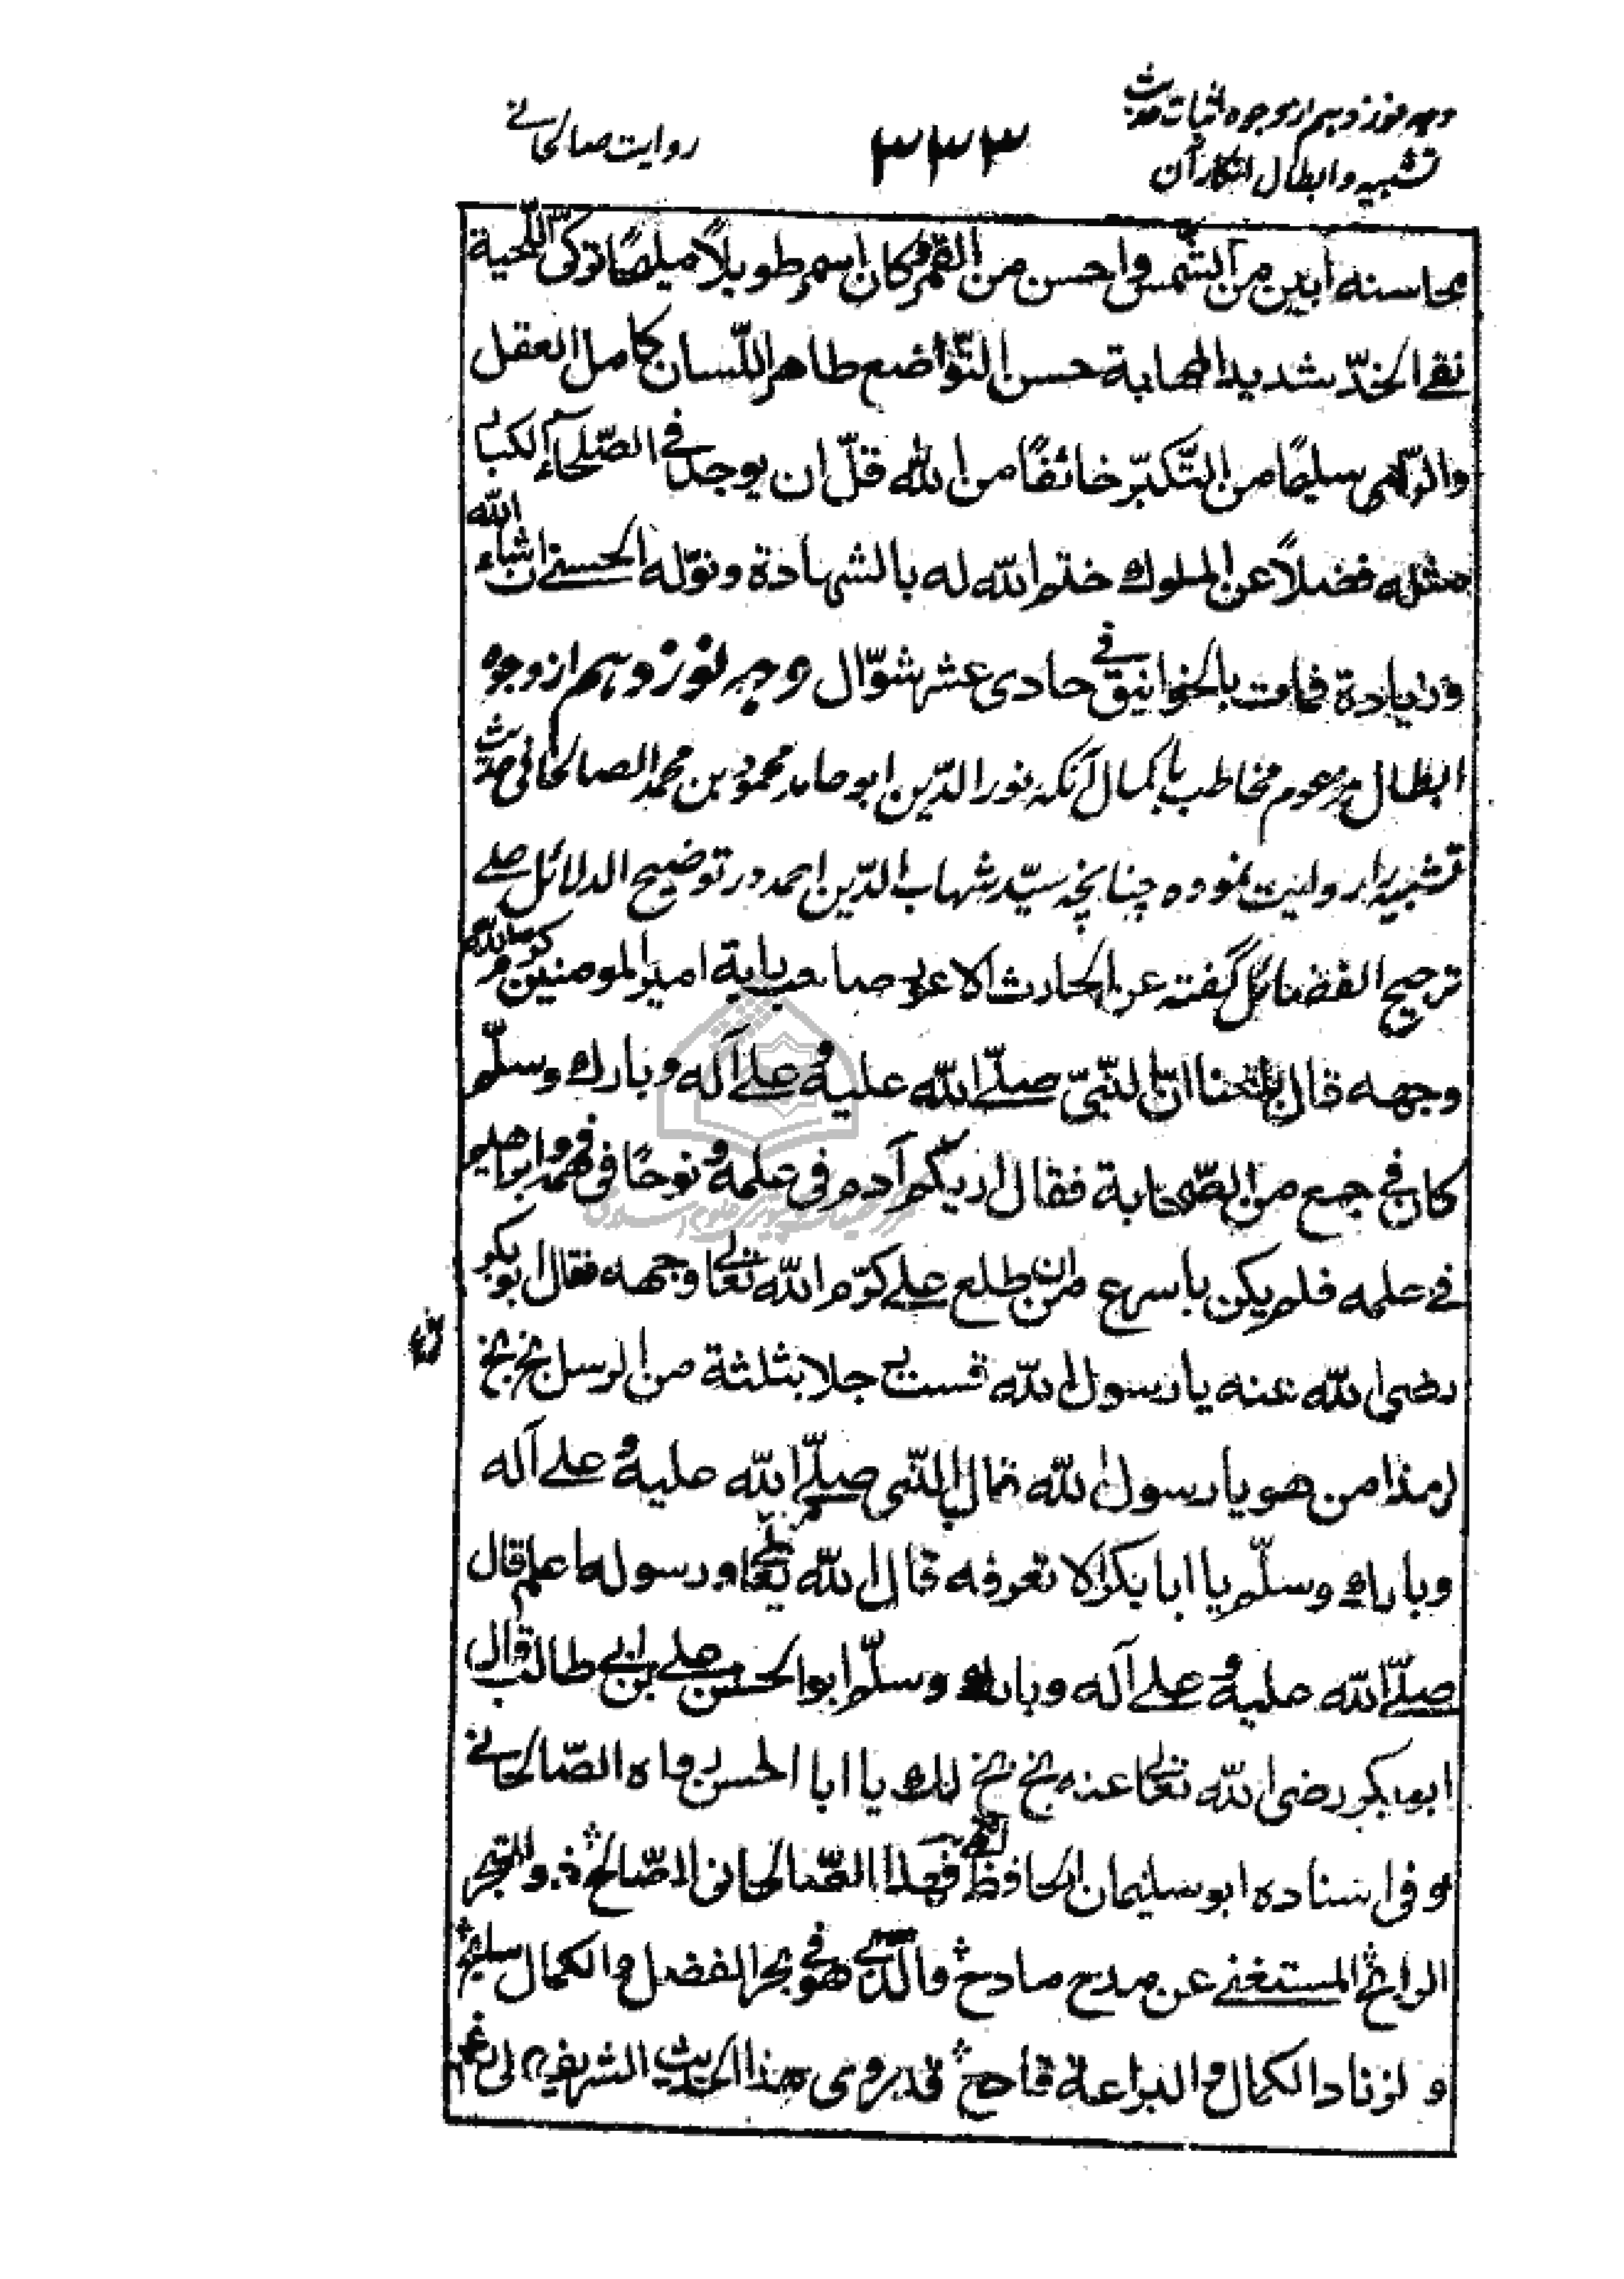 وجه نوزدهم از وجوه اثبات حدیث
تشبیه و ابطال انکار آن
۳۳۳
روایت صالحانے
محاسنه ابین من الشمس واحسن من القمر وکان اسمر طویلاً ملیحًا ترکیّ اللّحیة
نقے الخدّ شدید المهابة حسن التّواضع طاهر اللّسان کامل العقل
والرّای سلیمًا من التّکبّر خائفًا من الله قلّ ان یوجد فے الصّلحآء الکبار
مثله فضلاً عن الملوك ختم الله له بالشهادة ونوّله الحسنے ان شاء الله
وزیادة فمات بالخوانیق فے حادی عشر شوّال وجه نوزدهم از وجوه
ابطال مزعوم مخاطب باکمال آنکه نور الدّین ابو حامد محمود بن محمد الصالحانی حدیث
تشبیه را روایت نموده چنانچه سیّد شهاب الدّین احمد در توضیح الدلائل علے
ترجیح الفضائل گفته عن الحارث الاعور صاحب رایة امیر المومنین کرم الله
وجهه قال بلغنا انّ النّبیّ صلّے الله علیه و علے آله وبارك وسلّم
کان فے جمع من الصّحابة فقال اریکم آدم فی علمه و نوحًا فی فهمه و ابراهیم
فے حلمه فلم یکن باسرع من ان طلع علے کرّم الله تعالے وجهه فقال ابو بکر
رضی الله عنه یا رسول الله قست رجلا بثلثة من الرسل بخ بخ
لهذا من هو یا رسول الله قال النّبی صلّے الله علیه و علے آله
وبارك وسلّم یا ابا بکر الا تعرفه قال الله تعالے ورسوله اعلم قال
صلّے الله علیه و علے آله وبارك وسلّم ابو الحسن علے بن ابے طالب قال
ابو بکر رضی الله تعالے عنه بخ بخ لك یا ابا الحسن رواه الصّالحانے
وفی اسناده ابو سلیمان الحافظ انتهے فهذا الصّالحانی الصّالح ذو المتجر
الرابح المستغنے عن مدح مادح والّذے هو فے بحر الفضل والکمال سابح
و لزناد الکمال والبراعة قادح قد روی هذا الحدیث الشریف